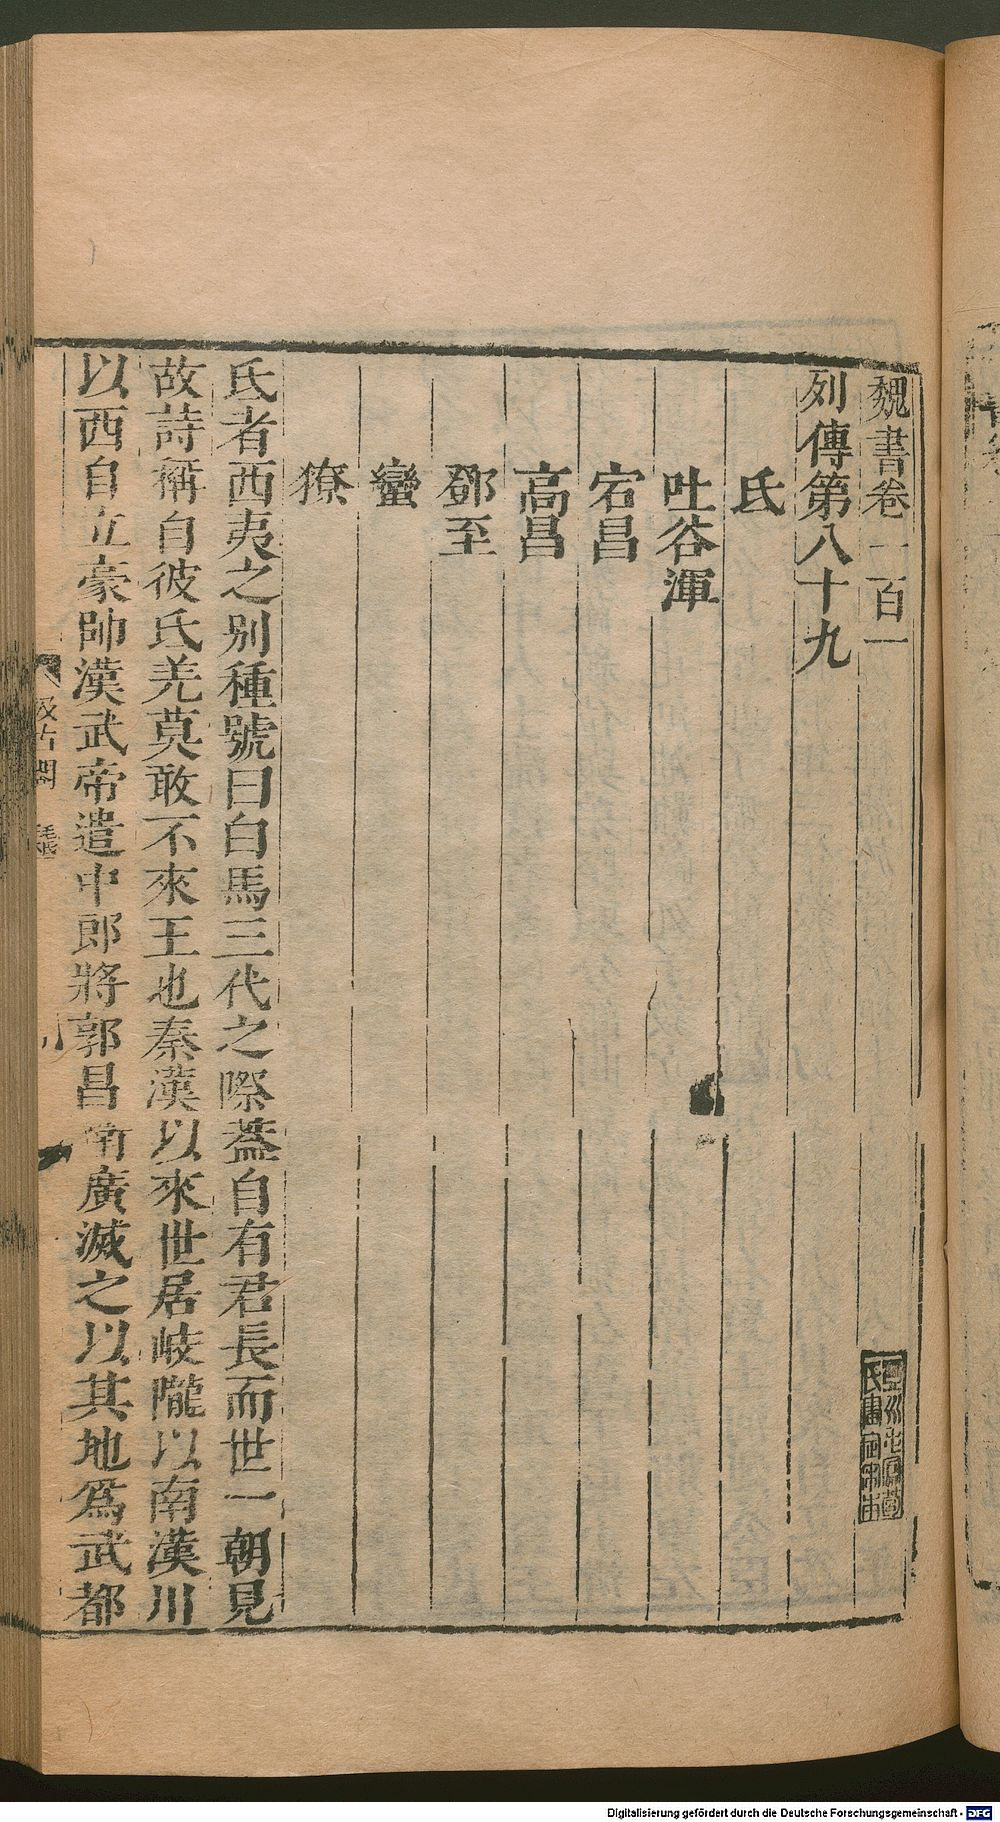 魏書卷一百一
列傳第八十九
氐
吐谷渾
宕昌
高昌
鄧至
蠻
獠
氐者西夷之別種號曰白馬三代之際蓋自有君長而世一朝見
故詩稱自彼氐羌莫敢不來王也秦漢以來世居岐隴以南漢川
以西自立豪帥漢武帝遣中郎將郭昌衛廣滅之以其地爲武都
汲古閣
毛氏
Digitalisierung gefördert durch die Deutsche Forschungsgemeinschaft - DFG